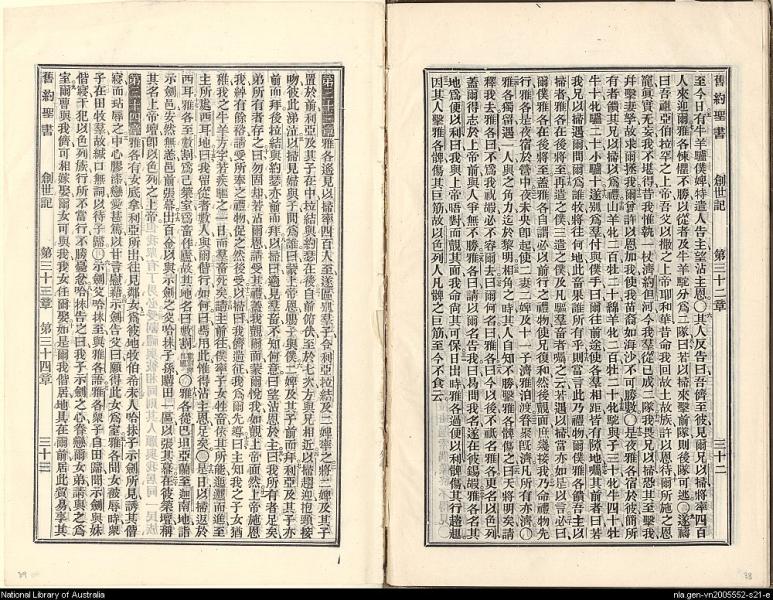 舊約聖書 創世記 第三十二章 三十二
至今日有牛羊驢僕婢特遣人告主望沾主恩〇其人反告曰吾儕至彼見爾兄以掃將率四百
人來迎爾雅各悚懼不勝以從者及牛羊駝分爲二隊曰若以掃來擊前隊則後隊可逃〇遂禱
曰吾祖亞伯拉罕之上帝吾父以撒之上帝耶和華昔命我回故土故族許以恩待爾所施之恩
寵眞實無妄我不堪得昔我惟執一杖濟約但河今我羣從已成二隊我畏兄以掃恐其至擊我
幷擊妻孥故求爾拯我爾曾許以恩加我使我苗裔如海沙不可勝數〇是夜雅各宿於彼簡所
有者饋其兄以掃爲禮山羊牝二百牡二十綿羊牝二百牡二十駝與子三十牝牛四十牡
牛十牝驢二十小驢十遂別爲羣付與僕手曰爾往前途使各羣相距皆有隙地囑其前者曰若
我兄以掃遇爾問爾爲誰牧將往何地此畜果誰所有乎則當言此乃禮物爾僕雅各饋吾主以
掃者雅各在後將至再遣之僕三遣之僕及凡驅羣畜者囑之云若遇以掃當亦如是以言必曰
爾僕雅各在後將至蓋雅各自謂必以前行之禮物使兄復和然後覿面庶幾接我乃命禮物先
行雅各是夜宿於營中夜未央卽起使二妻二婢及十一子濟雅泊渡眷聚旣濟凡所有亦濟〇
雅各獨留遇一人與之角力迄於黎明相角之時其人自知不勝擊雅各髀傷之曰天將明矣請
釋我去雅各曰不爲我祝嘏必不容爾去曰爾何名曰雅各曰今以後不祗名雅各更名以色列
蓋爾得志於上帝前與人爭無不勝雅各曰請以爾名告我曰曷問我名遂在彼錫嘏雅各名其
地爲便以利曰我與上帝晤對而覿其面我命尙其可保日出時雅各過便以利髀傷其行趦趄
因其人擊雅各髀傷其巨筋故以色列人凡髀之巨筋至今不食云
第三十三章雅各遙見以掃率四百人至遂區別羣子令利亞拉結及二婢率之將二婢及其子
置於前利亞及其子在中拉結與約瑟在後自前俯伏至於七次方與兄相近以掃趨迎抱頸接
吻彼此涕泣以掃見婦與子問爲誰曰蒙上帝恩賜子與僕二婢及其子前而拜利亞及其子亦
前而拜後拉結與約瑟亦前而拜以掃曰適見羣畜不知何意曰望沾恩於主曰我所有者足矣
弟所有者存之曰勿固却若沾爾恩請受其禮蓋我覩爾面而蒙爾悅我如觀上帝面然上帝施恩
我綽有餘裕請受所奉之禮物促之然後受以掃曰我儕蓋征我爲爾先導曰主知我之子女猶
稚我之牛羊方字若疾驅之一日而羣畜死矣請主前往僕率子女牲畜依其所能迤邐而進至
主所處西耳地曰我留從者數人與爾偕行如何曰焉用此惟得沾主恩足矣〇是日以掃返於
西耳雅各至數割爲己築室爲畜作廬故其地名曰數割〇雅各從巴坦亞蘭至迦南地詣
示劍邑安然無恙邑前張幕出百金以與示劍之父哈抹子孫購田一區以張其幕在彼築壇稱
其名上帝壇卽以色列之上帝
第三十四章雅各有女底拿利亞所出往見鄰女爲彼地牧伯希未人哈抹子示劍所見誘其偕
寢而玷辱之中心膠結戀愛甚篤以甘言慰藉示劍告父曰願得此女爲室雅各聞女被辱時衆
子在田牧羣故緘口無言以待子歸〇示劍父哈抹至與雅各語雅各衆子自田歸聞示劍與妹
偕寢干犯以色列族行所不當行不勝忿怒哈抹告之曰我子示劍之心眷戀爾女弟請與之爲
室爾曹與我儕可相嫁娶爾女可與我我女任爾娶如是爾我偕居地其在爾前居此貿易享其
舊約聖書 創世記 第三十三章 第三十四章 三十三
39
38
National Library of Australia
nla.gen-vn2005552-s21-e